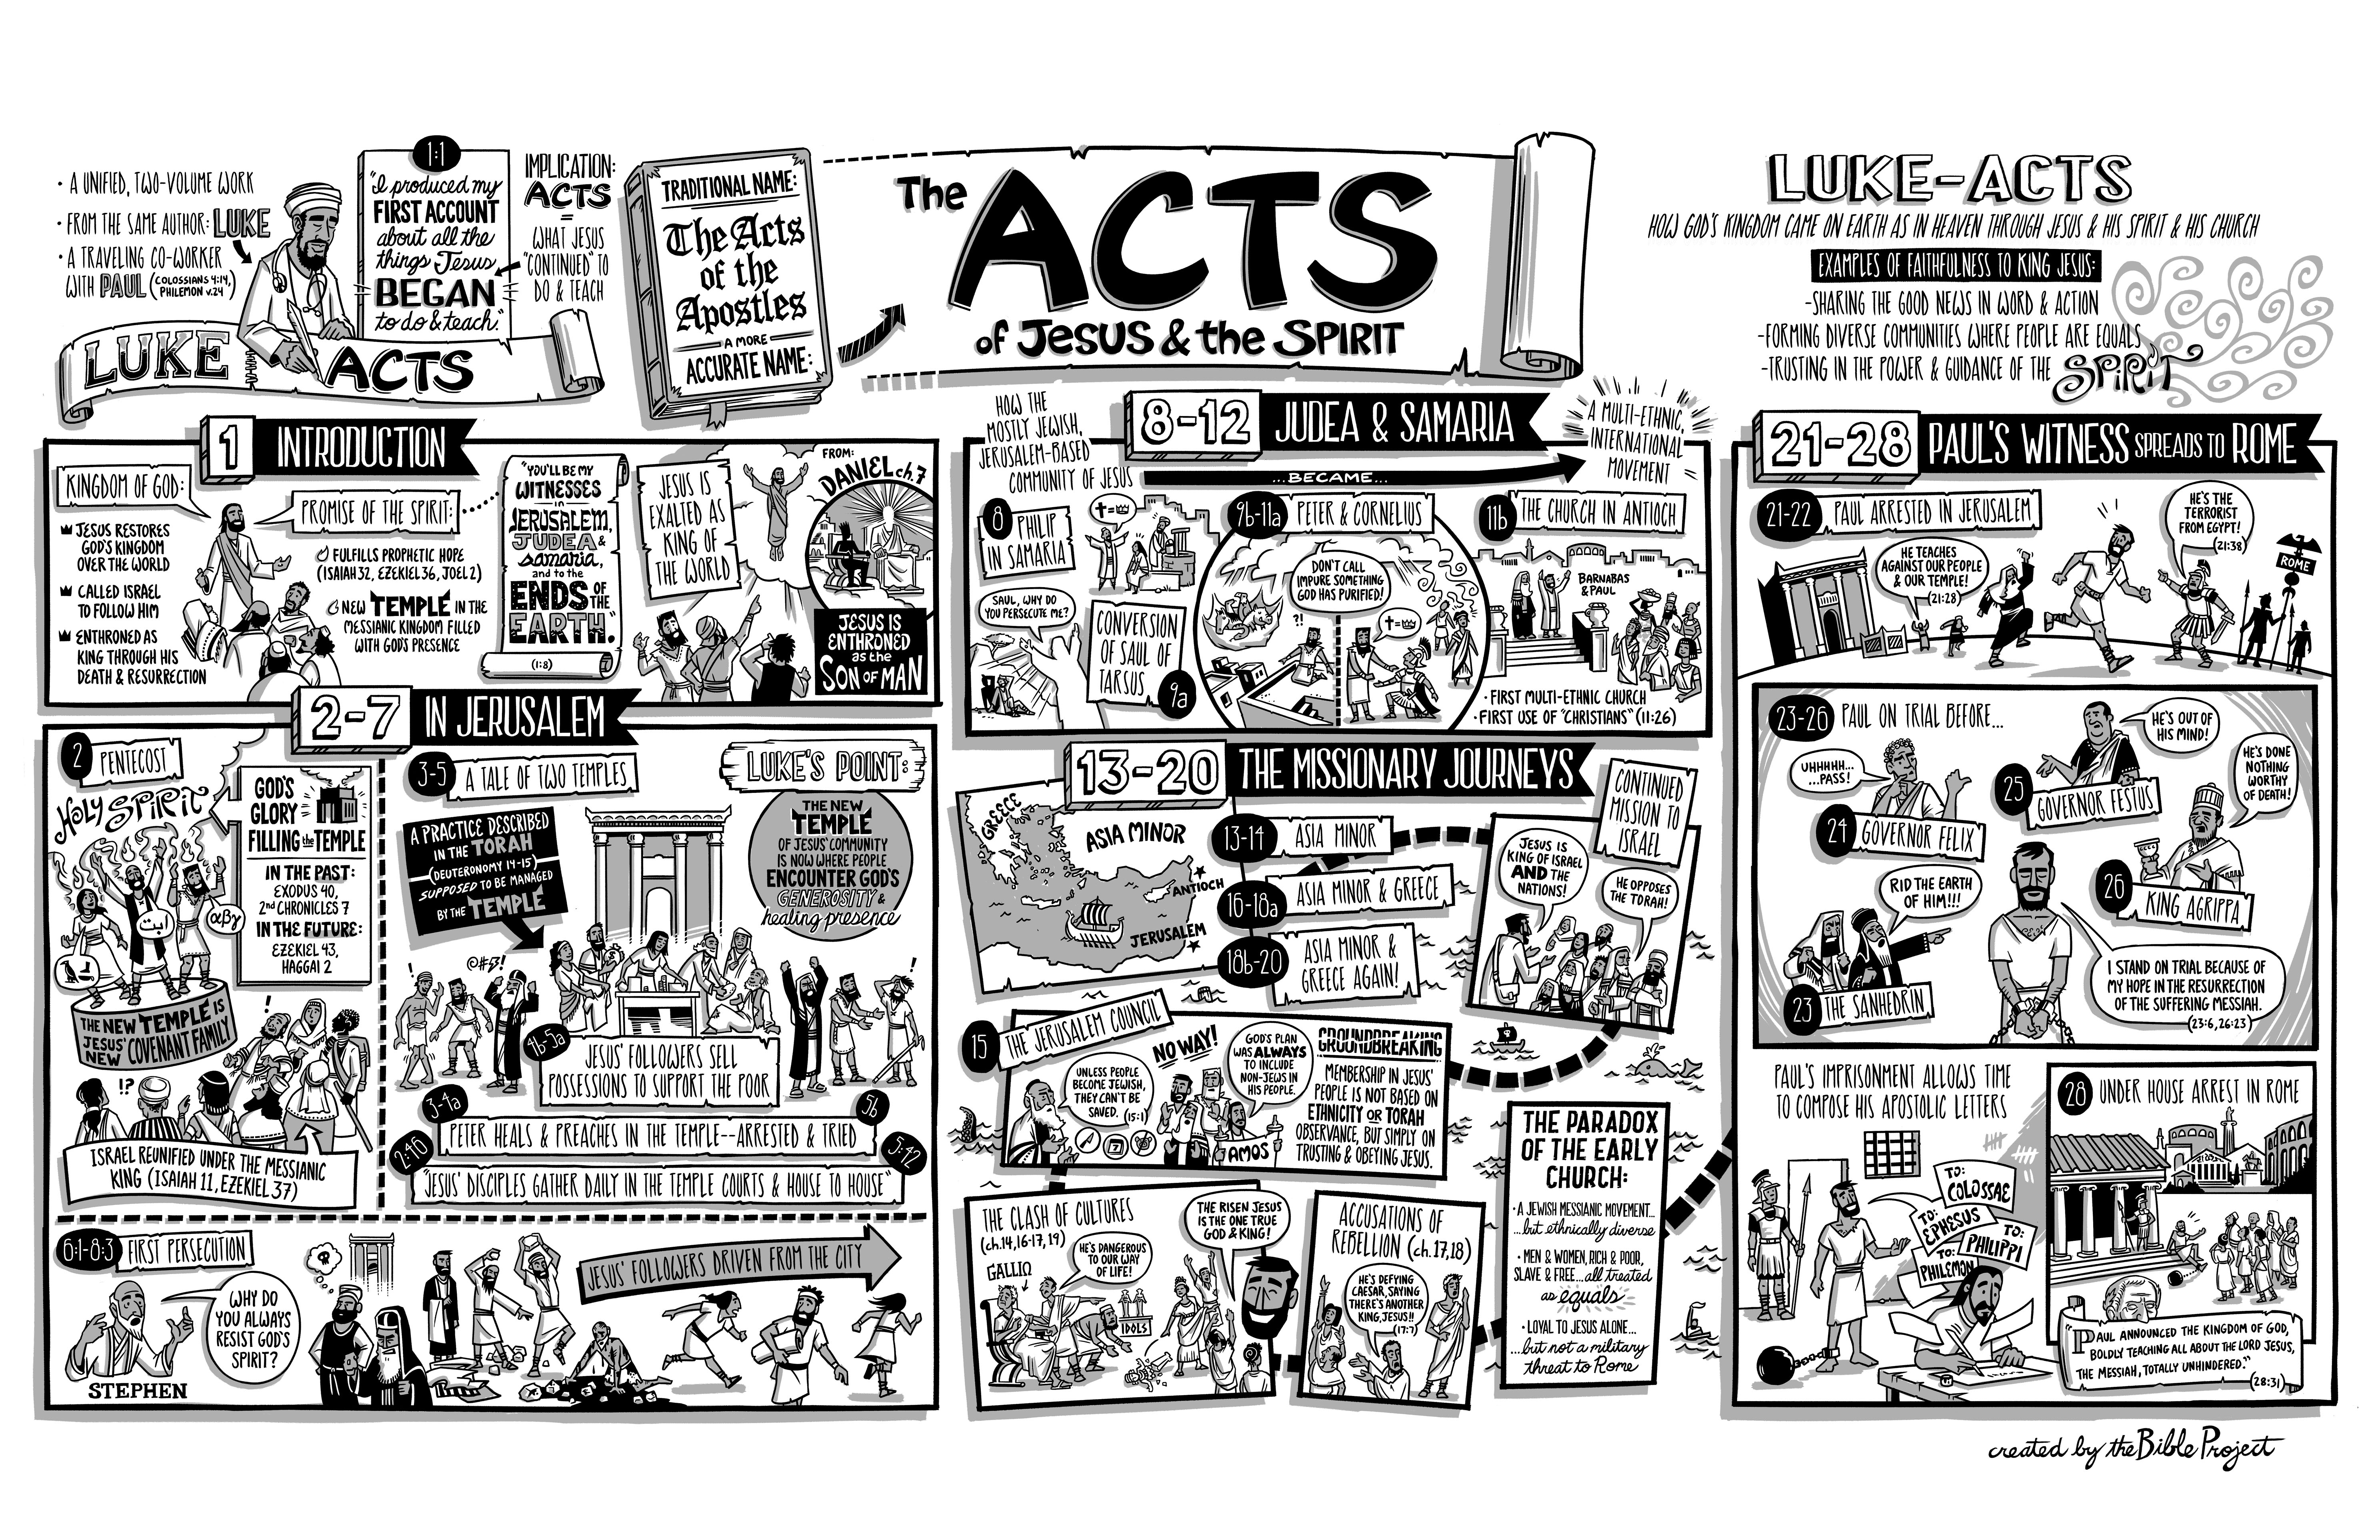 • A UNIFIED, TWO-VOLUME WORK
• FROM THE SAME AUTHOR: LUKE
• A TRAVELING CO-WORKER
WITH PAUL (COLOSSIANS 4:14,
PHILEMON v.24)
LUKE ACTS
1:1
"I produced my
FIRST ACCOUNT
about all the
things Jesus
BEGAN
to do & teach."
IMPLICATION:
ACTS
=
WHAT JESUS
"CONTINUED" TO
DO & TEACH
TRADITIONAL NAME:
The Acts
of the
Apostles
A MORE
ACCURATE NAME:
The ACTS
of JESUS & the SPIRIT
LUKE-ACTS
HOW GOD'S KINGDOM CAME ON EARTH AS IN HEAVEN THROUGH JESUS & HIS SPIRIT & HIS CHURCH
EXAMPLES OF FAITHFULNESS TO KING JESUS:
-SHARING THE GOOD NEWS IN WORD & ACTION
-FORMING DIVERSE COMMUNITIES WHERE PEOPLE ARE EQUALS
-TRUSTING IN THE POWER & GUIDANCE OF THE SPIRIT
1 INTRODUCTION
KINGDOM OF GOD:
JESUS RESTORES
GOD'S KINGDOM
OVER THE WORLD
CALLED ISRAEL
TO FOLLOW HIM
ENTHRONED AS
KING THROUGH HIS
DEATH & RESURRECTION
PROMISE OF THE SPIRIT:
FULFILLS PROPHETIC HOPE
(ISAIAH 32, EZEKIEL 36, JOEL 2)
NEW TEMPLE IN THE
MESSIANIC KINGDOM FILLED
WITH GOD'S PRESENCE
"YOU'LL BE MY
WITNESSES
in
JERUSALEM,
JUDEA &
samaria,
and to the
ENDS OF THE
EARTH."
(1:8)
JESUS IS
EXALTED AS
KING OF
THE WORLD
FROM:
DANIEL ch.7
JESUS IS
ENTHRONED
as the
SON OF MAN
2-7 IN JERUSALEM
2 PENTECOST
HOLY SPIRIT
GOD'S
GLORY
FILLING the TEMPLE
IN THE PAST:
EXODUS 40,
2nd CHRONICLES 7
IN THE FUTURE:
EZEKIEL 43,
HAGGAI 2
αβγ
THE NEW TEMPLE IS
JESUS' NEW COVENANT FAMILY
!
!?
ISRAEL REUNIFIED UNDER THE MESSIANIC
KING (ISAIAH 11, EZEKIEL 37)
3-5 A TALE OF TWO TEMPLES
A PRACTICE DESCRIBED
IN THE TORAH
(DEUTERONOMY 14-15)
SUPPOSED TO BE MANAGED
BY THE TEMPLE
LUKE'S POINT:
THE NEW
TEMPLE
OF JESUS' COMMUNITY
IS NOW WHERE PEOPLE
ENCOUNTER GOD'S
GENEROSITY &
healing presence
!
@#$!
!
4b-5a
JESUS' FOLLOWERS SELL
POSSESSIONS TO SUPPORT THE POOR
3-4a
5b
PETER HEALS & PREACHES IN THE TEMPLE--ARRESTED & TRIED
2:46
5:42
"JESUS' DISCIPLES GATHER DAILY IN THE TEMPLE COURTS & HOUSE TO HOUSE"
6:1-8:3 FIRST PERSECUTION
WHY DO
YOU ALWAYS
RESIST GOD'S
SPIRIT?
STEPHEN
JESUS' FOLLOWERS DRIVEN FROM THE CITY
8-12 JUDEA & SAMARIA
HOW THE
MOSTLY JEWISH,
JERUSALEM-BASED
COMMUNITY OF JESUS
...BECAME...
A MULTI-ETHNIC,
INTERNATIONAL
MOVEMENT
8 PHILIP
IN SAMARIA
SAUL, WHY DO
YOU PERSECUTE ME?
CONVERSION
OF SAUL OF
TARSUS
9a
9b-11a PETER & CORNELIUS
DON'T CALL
IMPURE SOMETHING
GOD HAS PURIFIED!
?!
11b THE CHURCH IN ANTIOCH
BARNABAS
& PAUL
• FIRST MULTI-ETHNIC CHURCH
• FIRST USE OF "CHRISTIANS" (11:26)
13-20 THE MISSIONARY JOURNEYS
GREECE
ASIA MINOR
ANTIOCH
JERUSALEM
13-14 ASIA MINOR
16-18a ASIA MINOR & GREECE
18b-20 ASIA MINOR &
GREECE AGAIN!
CONTINUED
MISSION TO
ISRAEL
JESUS IS
KING OF ISRAEL
AND THE
NATIONS!
HE OPPOSES
THE TORAH!
15 THE JERUSALEM COUNCIL
UNLESS PEOPLE
BECOME JEWISH,
THEY CAN'T BE
SAVED. (15:1)
NO WAY!
GOD'S PLAN
WAS ALWAYS
TO INCLUDE
NON-JEWS IN
HIS PEOPLE.
AMOS
GROUNDBREAKING
MEMBERSHIP IN JESUS'
PEOPLE IS NOT BASED ON
ETHNICITY OR TORAH
OBSERVANCE, BUT SIMPLY ON
TRUSTING & OBEYING JESUS.
THE CLASH OF CULTURES
(ch.14, 16-17, 19)
GALLIO
HE'S DANGEROUS
TO OUR WAY
OF LIFE!
IDOLS
THE RISEN JESUS
IS THE ONE TRUE
GOD & KING!
ACCUSATIONS OF
REBELLION (ch.17,18)
HE'S DEFYING
CAESAR, SAYING
THERE'S ANOTHER
KING, JESUS!!
(17:7)
THE PARADOX
OF THE EARLY
CHURCH:
• A JEWISH MESSIANIC MOVEMENT...
...but ethnically diverse
• MEN & WOMEN, RICH & POOR,
SLAVE & FREE...all treated
as equals
• LOYAL TO JESUS ALONE...
...but not a military
threat to Rome
21-28 PAUL'S WITNESS SPREADS TO ROME
21-22 PAUL ARRESTED IN JERUSALEM
HE TEACHES
AGAINST OUR PEOPLE
& OUR TEMPLE!
(21:28)
HE'S THE
TERRORIST
FROM EGYPT!
(21:38)
ROME
23-26 PAUL ON TRIAL BEFORE...
UHHHH...
...PASS!
24 GOVERNOR FELIX
HE'S OUT OF
HIS MIND!
25 GOVERNOR FESTUS
HE'S DONE
NOTHING
WORTHY
OF DEATH!
26 KING AGRIPPA
RID THE EARTH
OF HIM!!!
23 THE SANHEDRIN
I STAND ON TRIAL BECAUSE OF
MY HOPE IN THE RESURRECTION
OF THE SUFFERING MESSIAH.
(23:6, 26:23)
PAUL'S IMPRISONMENT ALLOWS TIME
TO COMPOSE HIS APOSTOLIC LETTERS
TO:
COLOSSAE
TO:
EPHESUS
TO:
PHILIPPI
TO:
PHILEMON
28 UNDER HOUSE ARREST IN ROME
"PAUL ANNOUNCED THE KINGDOM OF GOD,
BOLDLY TEACHING ALL ABOUT THE LORD JESUS,
THE MESSIAH, TOTALLY UNHINDERED."
(28:31)
created by the Bible Project